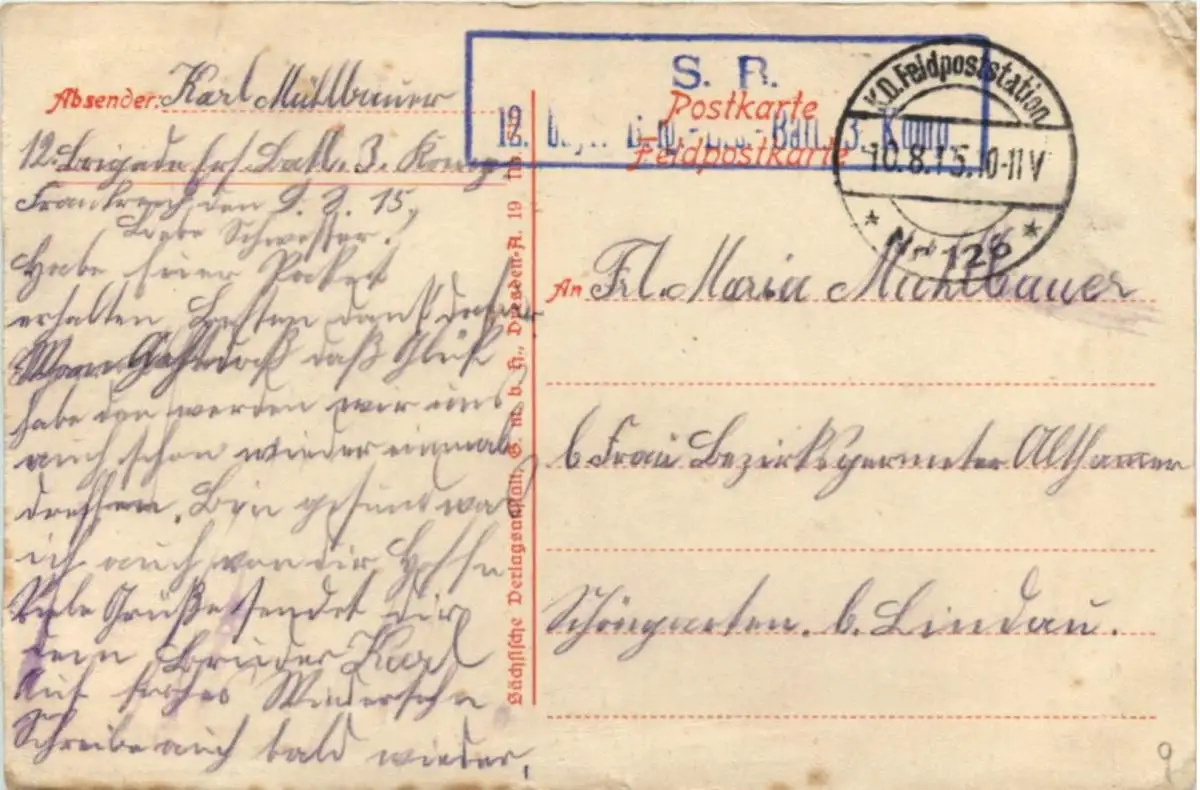 Absender: Karl Mühlbauer
12. Brigade Ers. Batl. 3. Komp.
Frankreich den 9. 8. 15.
Liebe Schwester!
Habe hier Paket
erhalten Besten Dank dafür
daß Glük
habe dan werden wir uns
auch schon wieder einmal
dreffen. Bin gesund was
ich auch von dir Hoffe
Viele Grüße sendet dir
dein Bruder Karl
Auf frohes Wiedersehn
Schreibe auch bald wieder.
Sächsische Verlagsanstalt, G. m. b. H., Dresden-A. 19
S. B.
Postkarte
Feldpostkarte
12. -Batl. 3. Komp.
K.D. Feldpoststation
10.8.15. 10-11 V
* Nr 126 *
An Frl. Maria Mühlbauer
b Frau Bezirksgermeter Althamer
Schöngarten. b. Lindau.
9